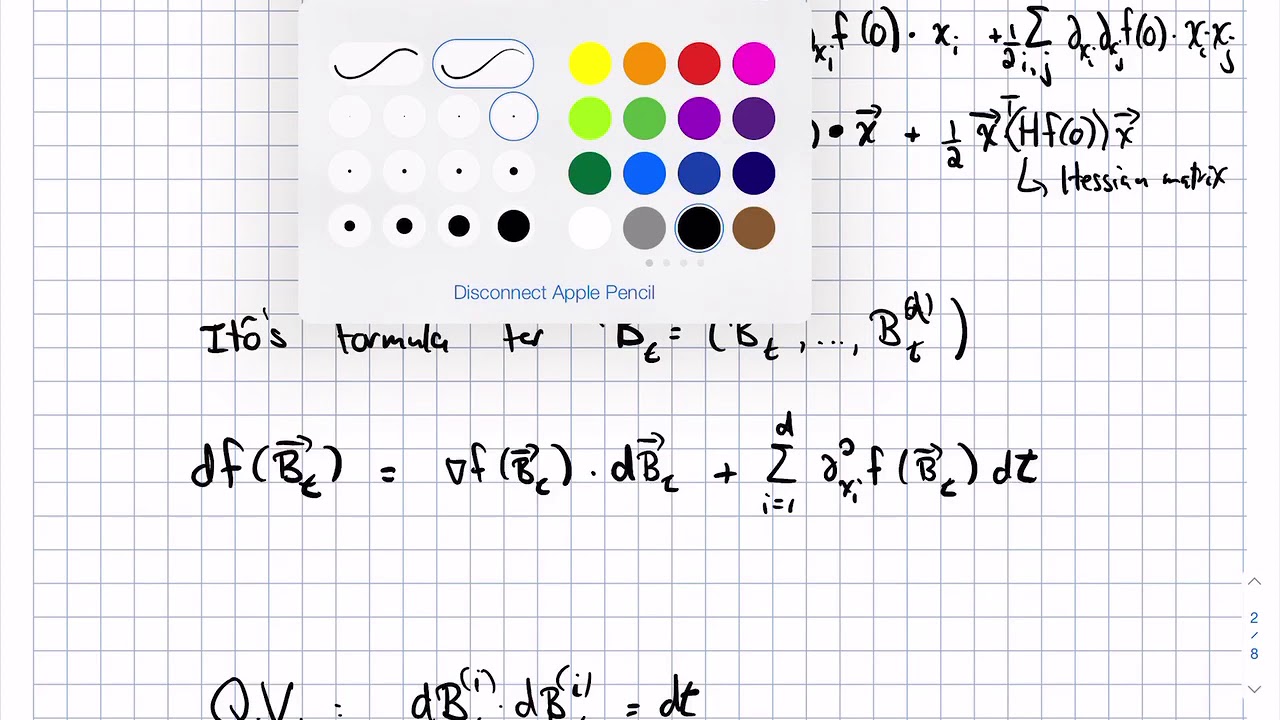 ∂ₓᵢf(0)·xᵢ + ½ ∑ᵢ,ⱼ ∂ₓᵢ∂ₓⱼf(0)·xᵢxⱼ
)•x⃗ + ½ x⃗ᵀ(Hf(0))x⃗
↳ Hessian matrix
Disconnect Apple Pencil
Itô's formula for B⃗ₜ = (Bₜ, ..., Bₜ⁽ᵈ⁾)
df(B⃗ₜ) = ∇f(B⃗ₜ)·dB⃗ₜ + ∑ᵢ₌₁ᵈ ∂²ₓᵢf(B⃗ₜ)dt
2
/
8
Q.V. : dB⁽ⁱ⁾·dB⁽ⁱ⁾ = dt